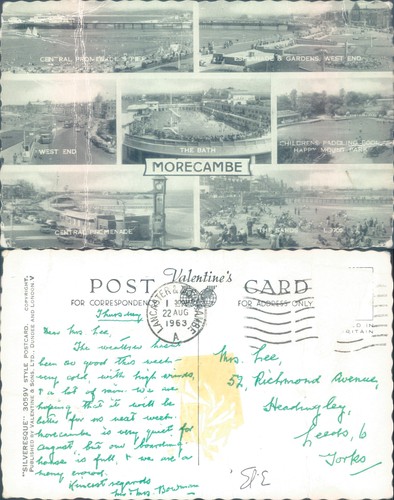 CENTRAL PROMENADE & PIER
ESPLANADE & GARDENS, WEST END
WEST END
THE BATH
CHILDREN'S PADDLING POOL,
HAPPY MOUNT PARK
MORECAMBE
CENTRAL PROMENADE
THE SANDS
L.3705
POST Valentine's CARD
FOR CORRESPONDENCE
FOR ADDRESS ONLY
"SILVERESQUE" 3059V STYLE POSTCARD. COPYRIGHT.
PUBLISHED BY VALENTINE & SONS, LTD., DUNDEE AND LONDON. V
22 AUG
1963
A
Thursday
Dear Mrs Lee,
The weather hasn't
been so good this week —
very cold with high winds,
& a lot of rain. We are
hoping that it will be
better for us next week.
Morecambe is very quiet for
August but our boarding
house is full & we are a
merry crowd.
Kindest regards
Mr & Mrs Bowman
Mrs. Lee,
52, Richmond Avenue,
Headingley,
Leeds, 6
Yorks